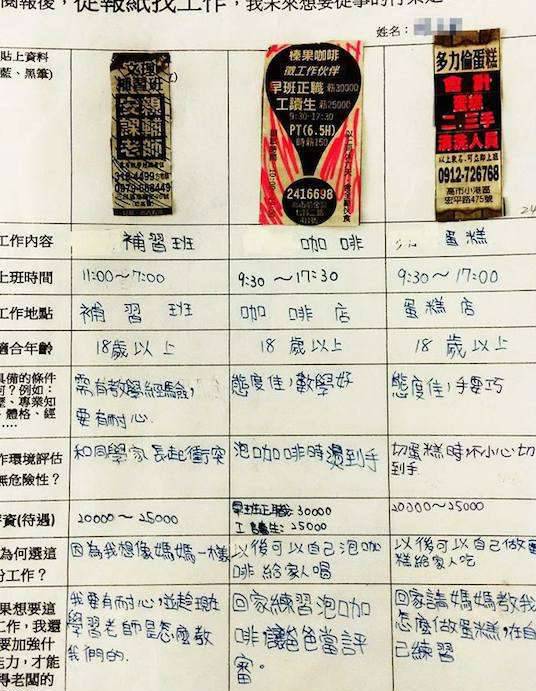 閱報後，從報紙找工作，我未來想要從事的行業是
姓名：
貼上資料
藍、黑筆)
文理
補習班
安親
課輔
老師
榛果咖啡
徵工作伙伴
早班正職 薪30000
工讀生 薪25000
9:30-17:30
PT(6.5H)
時薪150
2416698
多力倫蛋糕
會計
二、三手
以上東名．可立即上班
0912-726768
高市小港區
宏平路475號
工作內容 補習班 咖啡 蛋糕
上班時間 11:00～7:00 9:30～17:30 9:30～17:00
工作地點 補習班 咖啡店 蛋糕店
適合年齡 18歲以上 18歲以上 18歲以上
具備的條件
何？例如：
、專業知
、體格、經
.....
需有教學經驗，
要有耐心.
態度佳，數學好
態度佳，手要巧
作環境評估
無危險性？
和同學家長起衝突
泡咖啡時燙到手
切蛋糕時不小心切
到手.
資(待遇)
20000～25000
早班正職：30000
工讀生：25000
20000～25000
為何選這
份工作？
因為我想像媽媽一樣
以後可以自己泡咖
啡給家人喝
以後可以自己做蛋
糕給家人吃
果想要這
工作，我還
要加強什
能力，才能
得老闆的
我要有耐心，並趁現在
學習老師是怎麼教
我們的.
回家練習泡咖
啡讓爸爸當評
審。
回家請媽媽教我
怎麼做蛋糕，在自
己練習